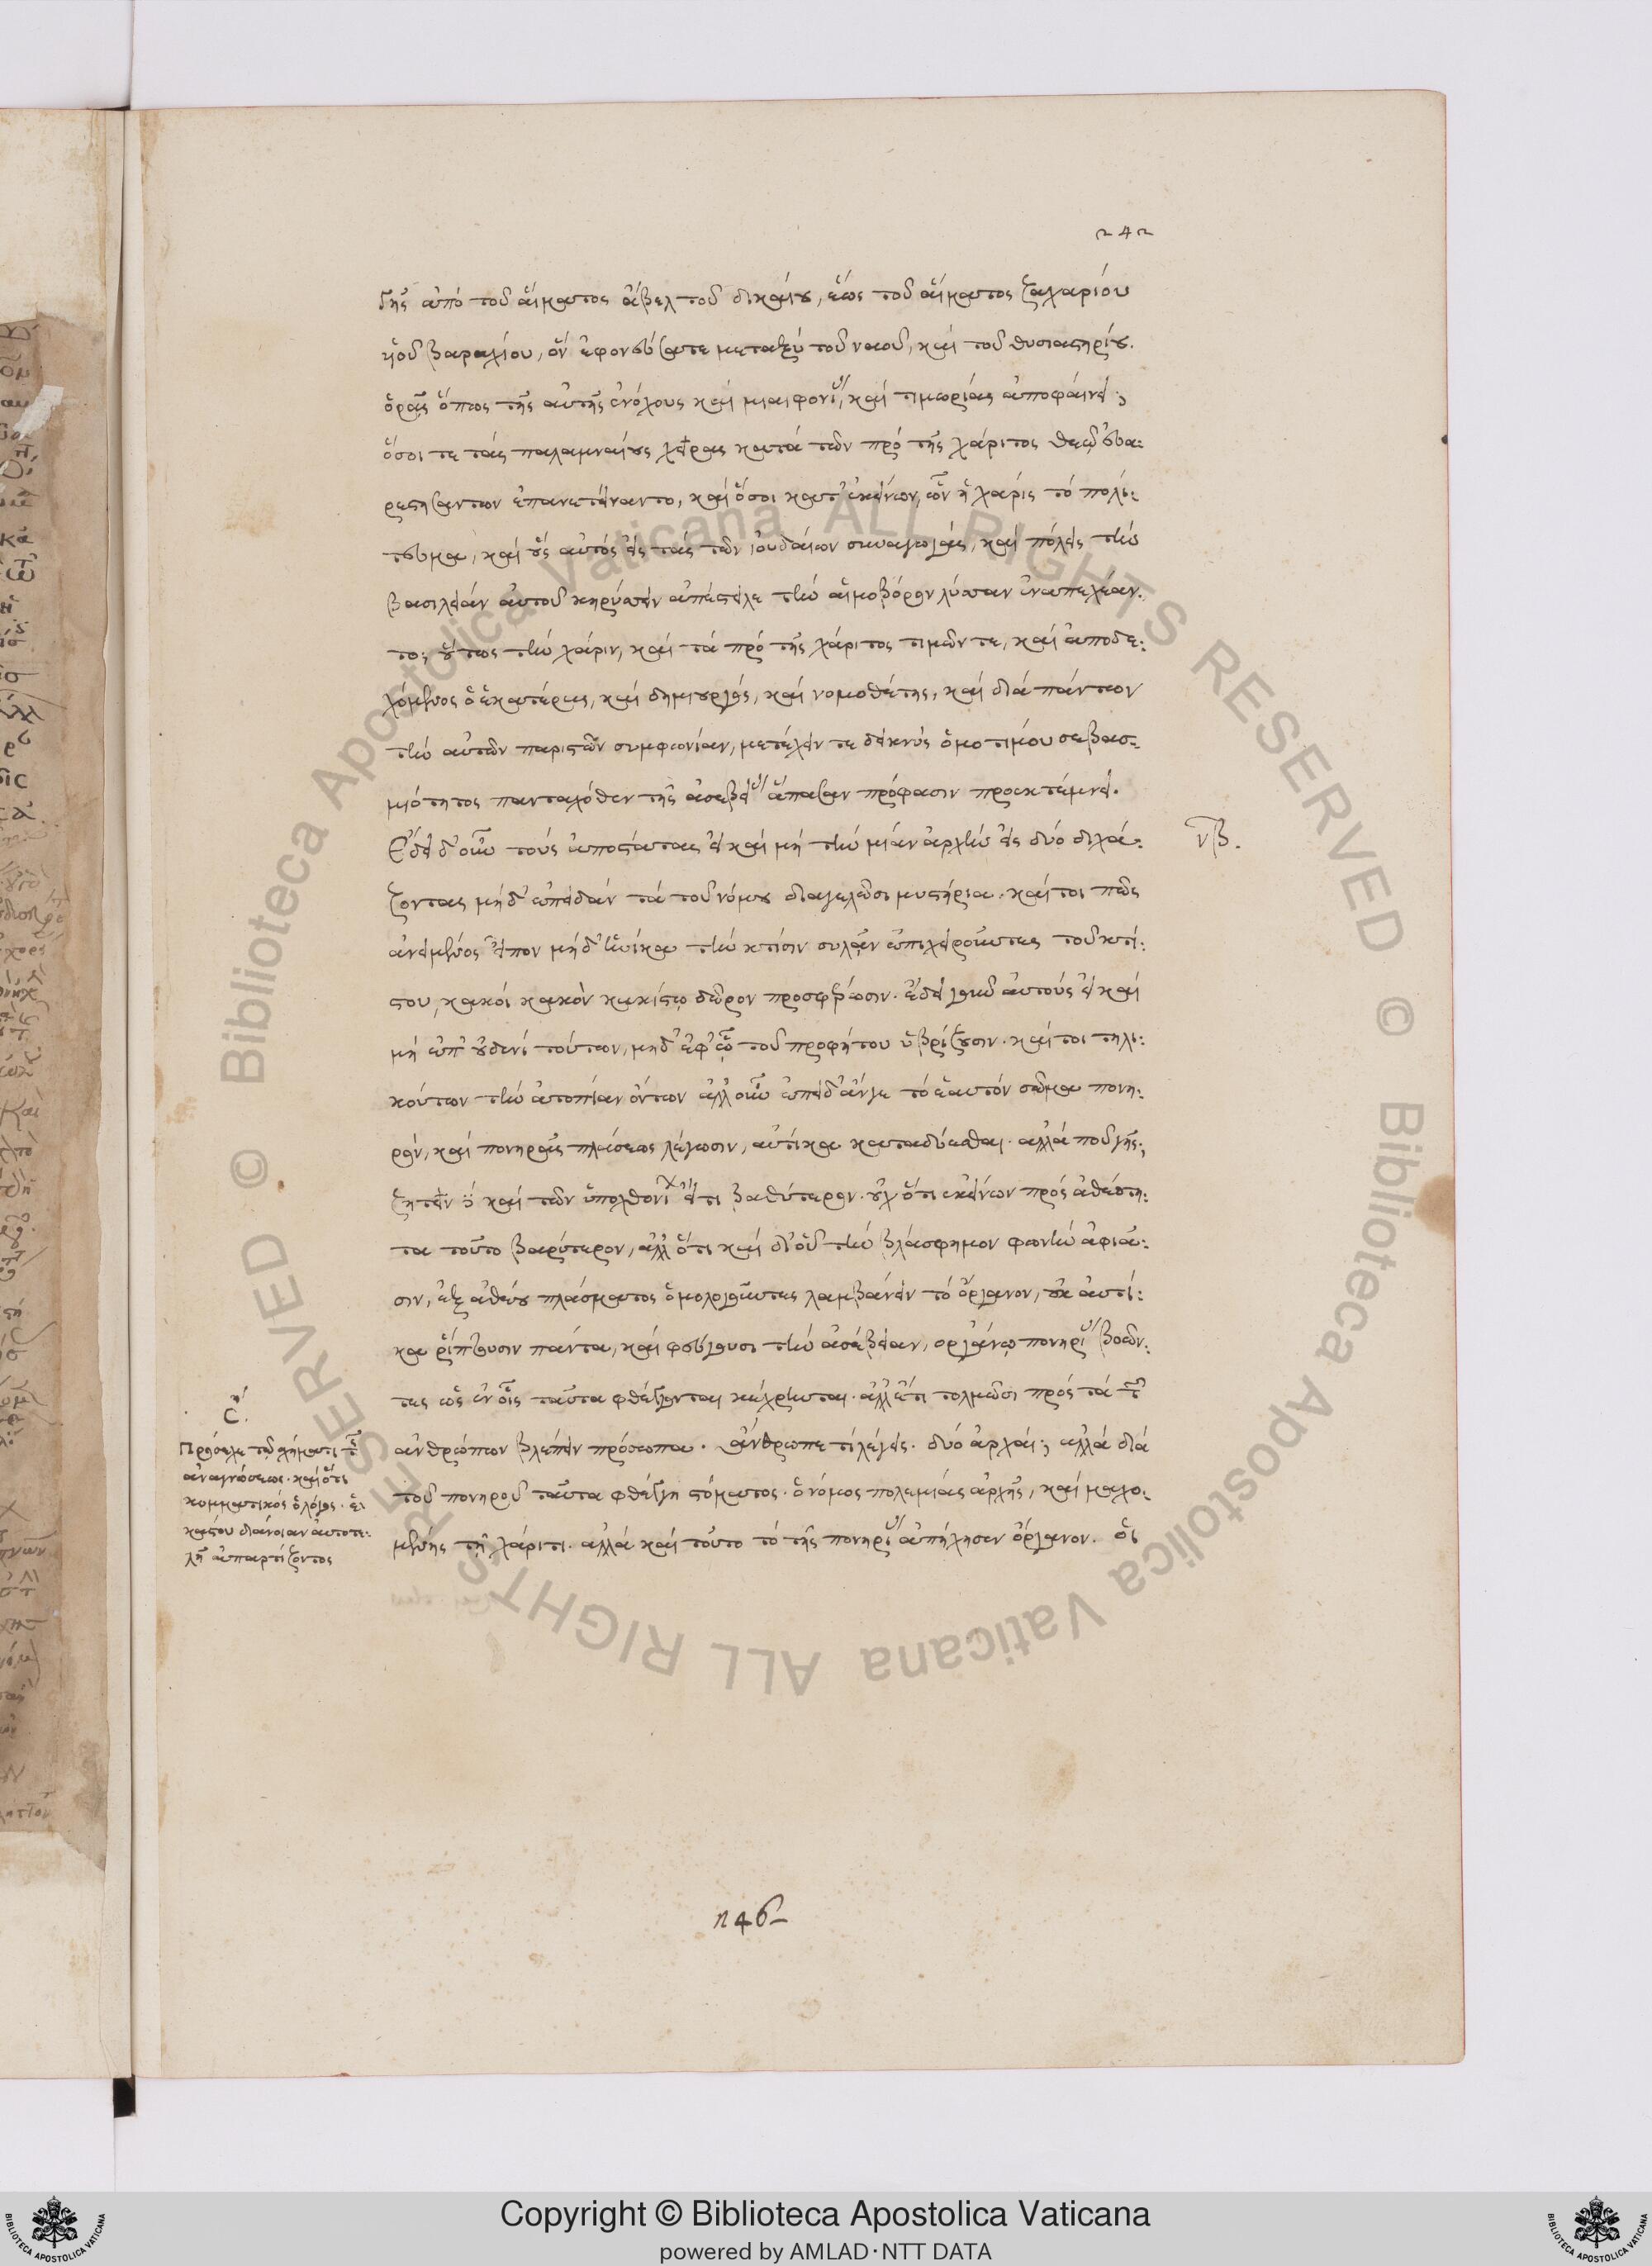 242
γῆς ἀπὸ τοῦ αἵματος ἄβελ τοῦ δικαίου, ἕως τοῦ αἵματος ζαχαρίου
υἱοῦ βαραχίου, ὃν ἐφονεύσατε μεταξὺ τοῦ ναοῦ, καὶ τοῦ θυσιαστηρίου.
ὁρᾷς ὅπως τῆς αὐτῆς ἐνόχους καὶ μιαιφονίας, καὶ τιμωρίας ἀποφαίνει;
ὅσοι τε τὰς παλαμναίους χεῖρας κατὰ τῶν πρὸ τῆς χάριτος θεῷ εὐα:
ρεστησάντων ἐπανετείναντο, καὶ ὅσοι κατ' ἐκείνων, ὧν ἡ χάρις τὸ πολί:
τευμα, καὶ οὓς αὐτὸς εἰς τὰς τῶν ἰουδαίων συναγωγὰς, καὶ πόλεις τὴν
βασιλείαν αὐτοῦ κηρύττειν ἀπέστειλε τὴν αἱμοβόρον λύτταν ἐναπεχέαν:
το; οὕτως τὴν χάριν, καὶ τὰ πρὸ τῆς χάριτος τιμῶν τε, καὶ ἀποδε:
χόμενος ὁ ἑκατέρας, καὶ δημιουργὸς, καὶ νομοθέτης, καὶ διὰ πάντων
τὴν αὐτῶν παριστῶν συμφωνίαν, μετέχειν τε δεικνὺς ὁμοτίμου σεβασ:
μιότητος πανταχόθεν τῆς ἀσεβείας ἅπασαν πρόφασιν προεκτέμνει.
Ἔδει δ' οὖν τοὺς ἀποστάτας εἰ καὶ μὴ τὴν μίαν ἀρχὴν εἰς δύο διχά:
νβ.
ζοντας μηδ' ἐπειδὰν τὰ τοῦ νόμου διαγελῶσι μυστήρια. καί τοι πῶς
ἀνειμένος εἶπον μηδ' ἡνίκα τὴν κτίσιν συλᾶν ἐπιχειροῦντες τοῦ κτί:
στου, κακοὶ κακὸν κακίστῳ δῶρον προσφέρωσιν. ἔδει γοῦν αὐτοὺς εἰ καὶ
μὴ ἐπ' οὐδενὶ τούτων, μηδ' ἐφ' ᾧ τοῦ προφήτου ὑβρίζουσιν. καί τοι τηλι:
κούτων τὴν ἀτοπίαν ὄντων ἀλλ' οὖν ἐπειδ' ἄν γε τὸ ἑαυτὸν σῶμα πονη:
ρὸν, καὶ πονηρᾶς πλάσεως λέγωσιν, αὐτίκα καταδύεσθαι. ἀλλὰ ποῦ γῆς;
ζητεῖν καὶ τῶν ὑποχθονίων ἔτι βαθύτερον. οὐχ ὅτι ἐκείνων πρὸς ἀθεότη:
τα τοῦτο βαρύτερον, ἀλλ' ὅτι καὶ δι' οὗ τὴν βλάσφημον φωνὴν ἀφιᾶ:
σιν, ἐξ ἀθέου πλάσματος ὁμολογοῦντες λαμβάνειν τὸ ὄργανον, οὐκ αὐτί:
κα ῥίπτουσιν πάντα, καὶ φεύγουσι τὴν ἀσέβειαν, ὀργάνῳ πονηρίας βοῶν:
τες ὡς ἐν οἷς ταῦτα φθέγγονται κέχρηνται. ἀλλ' ἔτι τολμῶσι πρὸς τὰ τῶν
ἀνθρώπων βλέπειν πρόσωπα. ἄνθρωπε τί λέγεις. δύο ἀρχαί; ἀλλὰ διὰ
τοῦ πονηροῦ ταῦτα φθέγγῃ στόματος. ὁ νόμος πολεμίας ἀρχῆς, καὶ μαχο:
μένης τῇ χάριτι. ἀλλὰ καὶ τοῦτο τὸ τῆς πονηρίας ἀπήχησεν ὄργανον. οἱ
Πρόσεχε τῷ σχήματι τῆς
ἀναγνώσεως. καὶ ὅτι
κομματικὸς ὁ λόγος. ἑ
κάστου διάνοιαν αὐτοτε:
λῆ ἀπαρτίζοντος
n 46
Copyright © Biblioteca Apostolica Vaticana
powered by AMLAD·NTT DATA
© Biblioteca Apostolica Vaticana ALL RIGHTS RESERVED
© Biblioteca Apostolica Vaticana ALL RIGHTS RESERVED
BIBLIOTECA APOSTOLICA VATICANA
BIBLIOTECA APOSTOLICA VATICANA